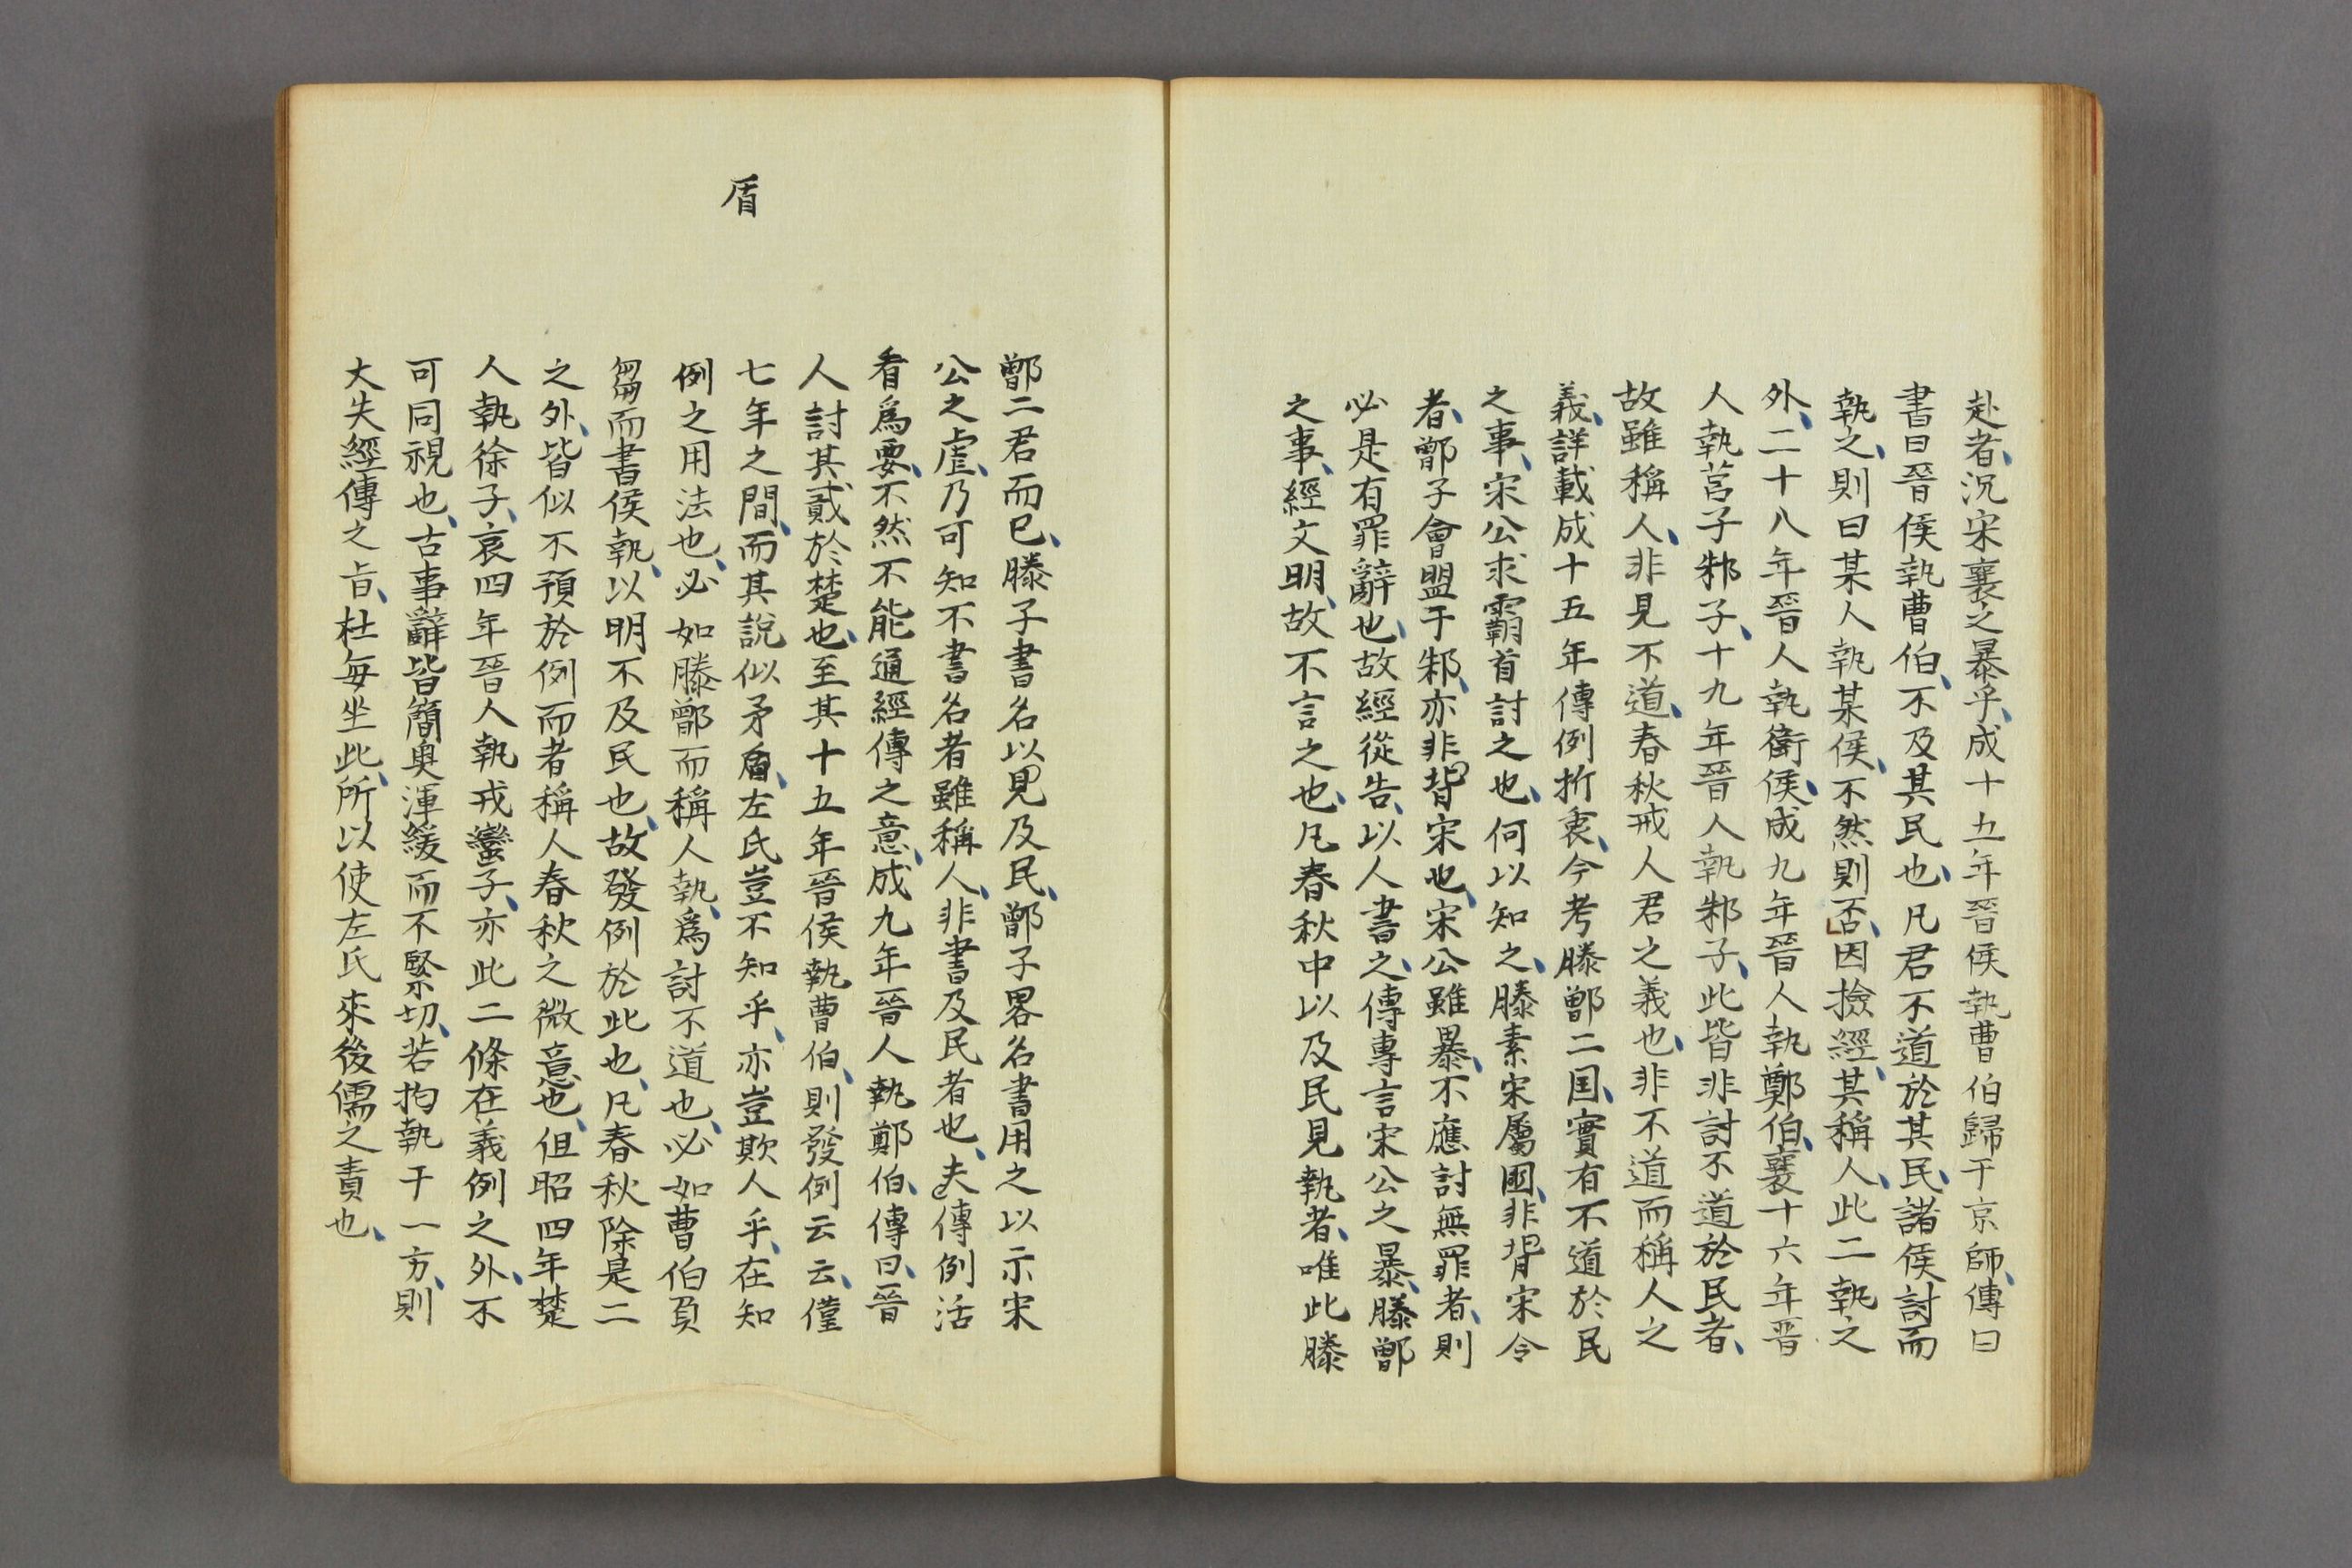 赴者、況宋襄之暴乎、成十五年晉侯執曹伯歸于京師、傳曰
書曰晉侯執曹伯、不及其民也、凡君不道於其民、諸侯討而
執之、則曰某人執某侯、不然則否、因撿經、其稱人、此二執之
外、二十八年晉人執衛侯、成九年晉人執鄭伯、襄十六年晋
人執莒子邾子、十九年晉人執邾子、此皆非討不道於民者、
故雖稱人、非見不道、春秋戒人君之義也、非不道而稱人之
義、詳載成十五年傳例折衷、今考滕鄫二国、實有不道於民
之事、宋公求霸首討之也、何以知之、滕素宋屬國、非背宋令
者、鄫子會盟于邾、亦非背宋也、宋公雖暴、不應討無罪者、則
必是有罪辭也、故經從告、以人書之、傳專言宋公之暴、滕鄫
之事、經文明、故不言之也、凡春秋中以及民見執者、唯此滕
鄫二君而已、滕子書名以見及民、鄫子畧名書用之以示宋
公之虐、乃可知不書名者雖稱人、非書及民者也、夫傳例活
看爲要、不然不能通經傳之意、成九年晉人執鄭伯、傳曰、晉
人討其貳於楚也、至其十五年晉侯執曹伯、則發例云云、僅
七年之間、而其說似矛盾、左氏豈不知乎、亦豈欺人乎、在知
例之用法也、必如滕鄫而稱人執、爲討不道也、必如曹伯負
芻而書侯執、以明不及民也、故發例於此也、凡春秋除是二
之外、皆似不預於例而者稱人春秋之微意也、但昭四年楚
人執徐子、哀四年晉人執戎蠻子、亦此二條在義例之外、不
可同視也、古事辭皆簡奧渾緩而不緊切、若拘執于一方、則
大失經傳之旨、杜每坐此、所以使左氏來後儒之責也、
盾